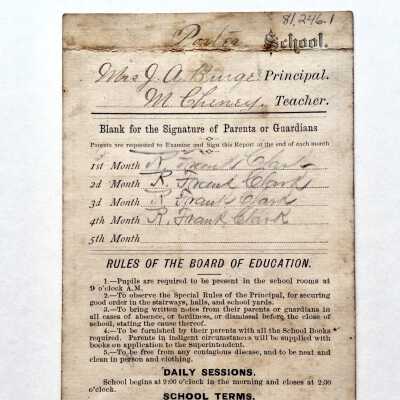 81.246.1
Porter School.
Mrs J. A. Burge Principal.
M Cheney. Teacher.
Blank for the Signature of Parents or Guardians
Parents are requested to Examine and Sign this Report at the end of each month
1st Month R. Frank Clark
2d Month R. Frank Clark
3d Month R. Frank Clark
4th Month R. Frank Clark
5th Month
RULES OF THE BOARD OF EDUCATION.
1.—Pupils are required to be present in the school rooms at
9 o'clock A.M.
2.—To observe the Special Rules of the Principal, for securing
good order in the stairways, halls, and school yards.
3.—To bring written notes from their parents or guardians in
all cases of absence, or tardiness, or dismissal before the close of
school, stating the cause thereof.
4.—To be furnished by their parents with all the School Books
required. Parents in indigent circumstances will be supplied with
books on application to the Superintendent.
5.—To be free from any contagious disease, and to be neat and
clean in person and clothing.
DAILY SESSIONS.
School begins at 9:00 o'clock in the morning and closes at 2:30
o'clock.
SCHOOL TERMS.